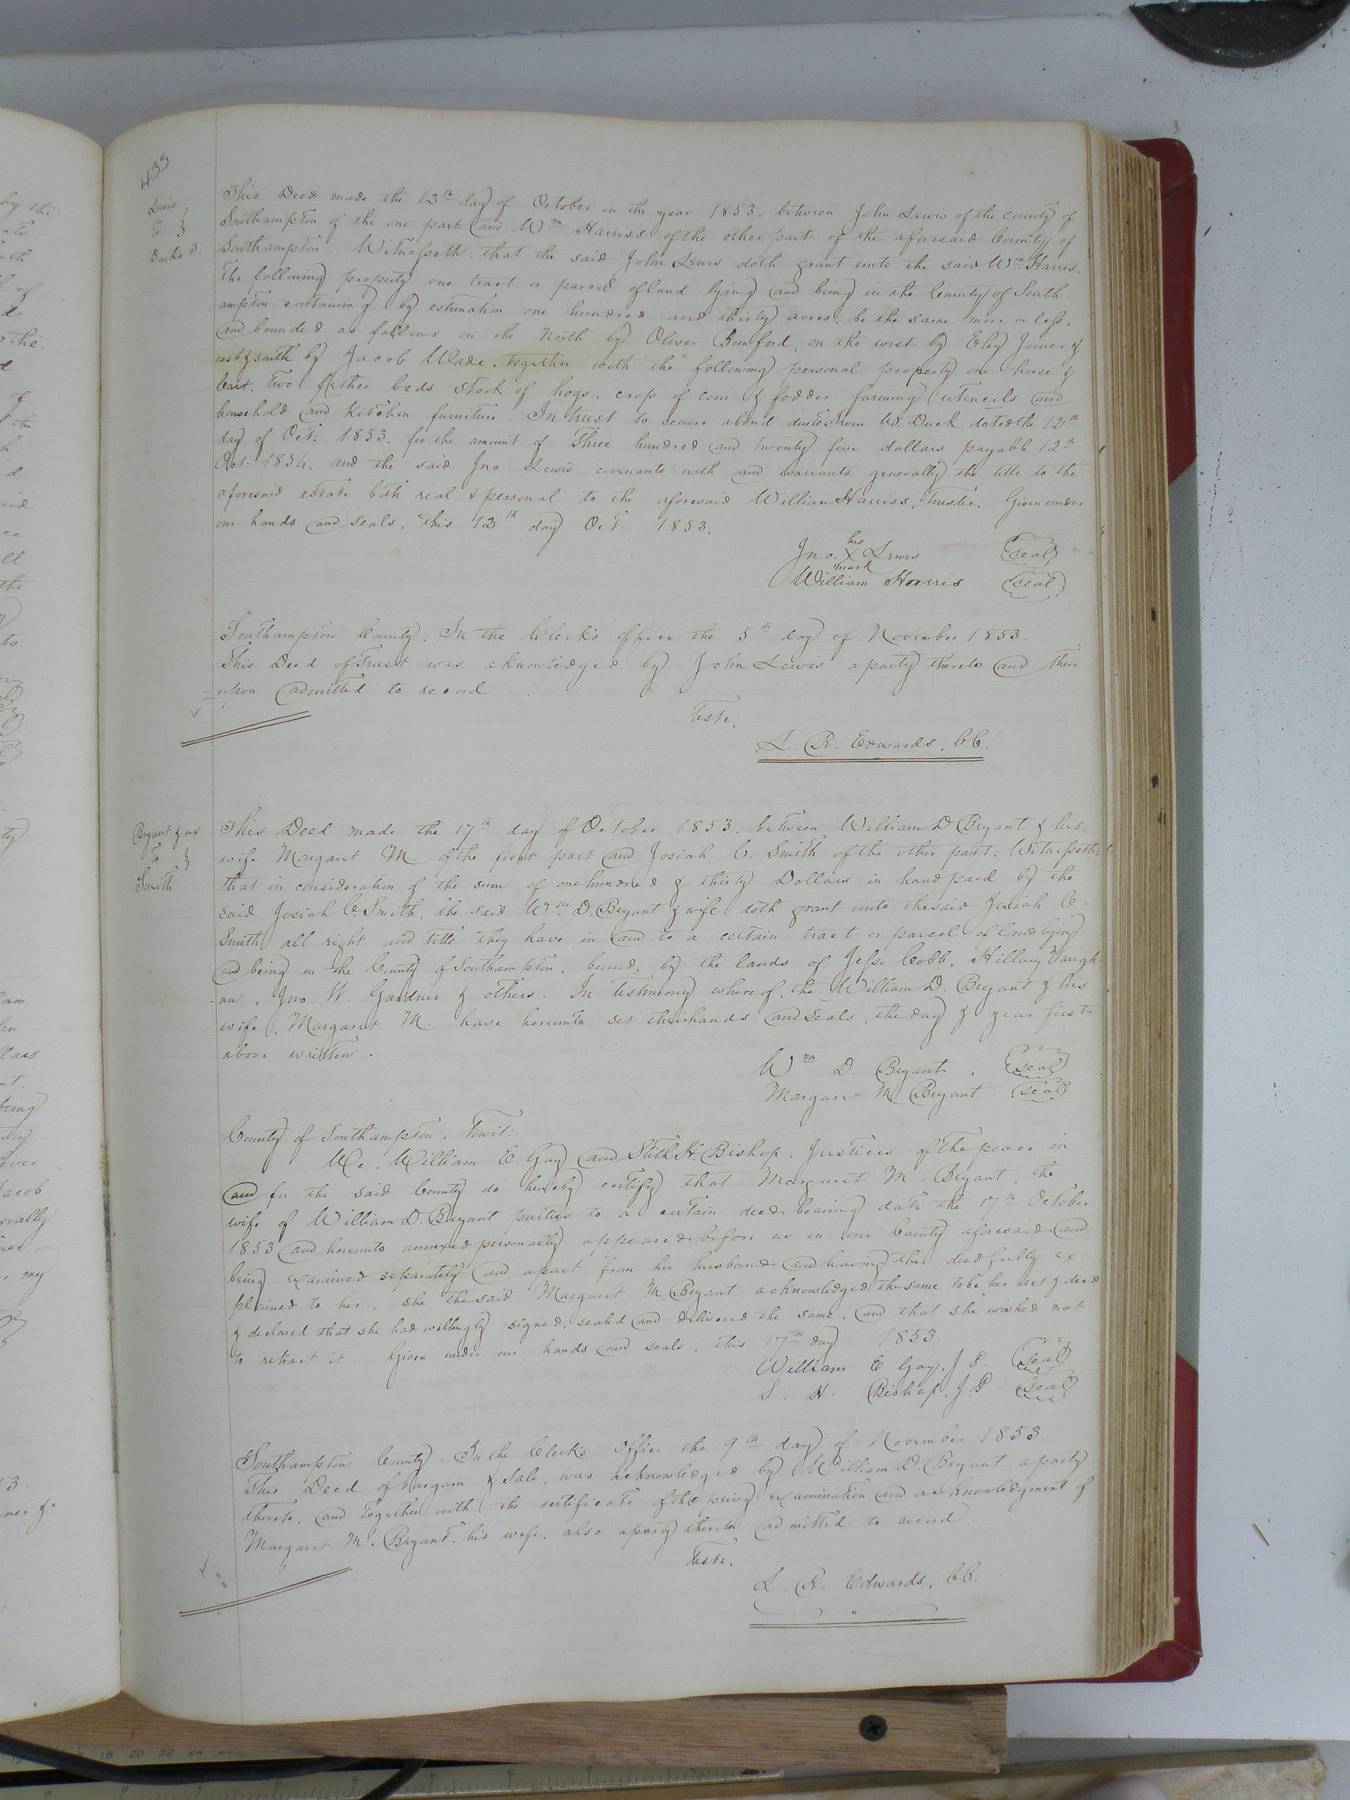 435
Lewis
To
Ducks T.
This Deed made the 12th day of October in the year 1853. between John Lewis of the county of
Southampton of the one part and Wm Harriss of the other part of the aforesaid County of
Southampton. Witnesseth. that the said John Lewis doth grant unto the said Wm Harris.
The following property one tract or parcel of land lying and being in the County of South
ampton containing by estimation one hundred and thirty acres. be the same more or less,
and bounded as follows on the North by Oliver Bumford, on the west by Eley Joiner &
east & south by Jacob Wade, together with the following personal property one horse &
Cart. Two feather beds stock of hogs. crop of corn & fodder farming utencils and
household and Kitchen furniture. In trust to secure a bond due from W. Duck dated the 12th
day of Oct: 1853. for the amount of Three hundred and twenty five dollars payable 12th
Oct: 1854. and the said Jno Lewis covenants with and warrants generally the title to the
aforesaid estate both real & personal to the aforesaid William Harriss, trustee. Given under
our hands and seals. this 12th day Oct: 1853.
his
Jno. X Lewis (seal)
mark
William Harris (seal)
Southampton County. In the Clerk's office the 5th day of November 1853.
This Deed of Trust was acknowledged by John Lewis a party thereto and there
upon admitted to record
Teste.
L. R. Edwards, C.C.
Bryant & ux
To
Smith
This Deed made the 17th day of October 1853. between William D Bryant & his
wife Margaret M of the first part and Josiah C. Smith of the other part: Witnesseth.
that in consideration of the sum of one hundred & thirty Dollars in hand paid by the
said Josiah C. Smith, the said Wm D. Bryant & wife doth grant unto the said Josiah C.
Smith all right and title they have in and to a certain tract or parcel of land lying
and being in the County of Southampton, bound: by the lands of Jesse Cobb, Hillary Vaugh-
an, Jno. W. Gardner & others. In testimony whereof, the William D. Bryant & his
wife. Margaret M. have hereunto set their hands and seals, the day & year first
above written.
Wm D. Bryant. (seal)
Margaret M Bryant (seal)
County of Southampton. Towit:
We. William E Gay and Stith H. Bishop. Justices of the peace in
and for the said County do hereby certify that Margaret M. Bryant, the
wife of William D. Bryant parties to a certain deed bearing date the 17th October
1853 and hereunto annexed personally appeared before us in our County aforesaid and
being examined separately and apart from her husband and having the deed fully ex
plained to her, she the said Margaret M Bryant acknowledged the same to be her act & deed
& declared that she had willingly signed, sealed and delivered the same, and that she wished not
to retract it. Given under our hands and seals, this 17th day 1853.
William E Gay, J P. (seal)
S. H. Bishop. J.P (seal)
Southampton County. In the Clerk's Office the 9th day of November 1853.
This Deed of bargain & sale, was acknowledged by William D. Bryant a party
thereto, and together with the certificate of the privy examination and acknowledgment of
Margaret M. Bryant. his wife, also a party thereto admitted to record.
Teste.
L R. Edwards, C.C.